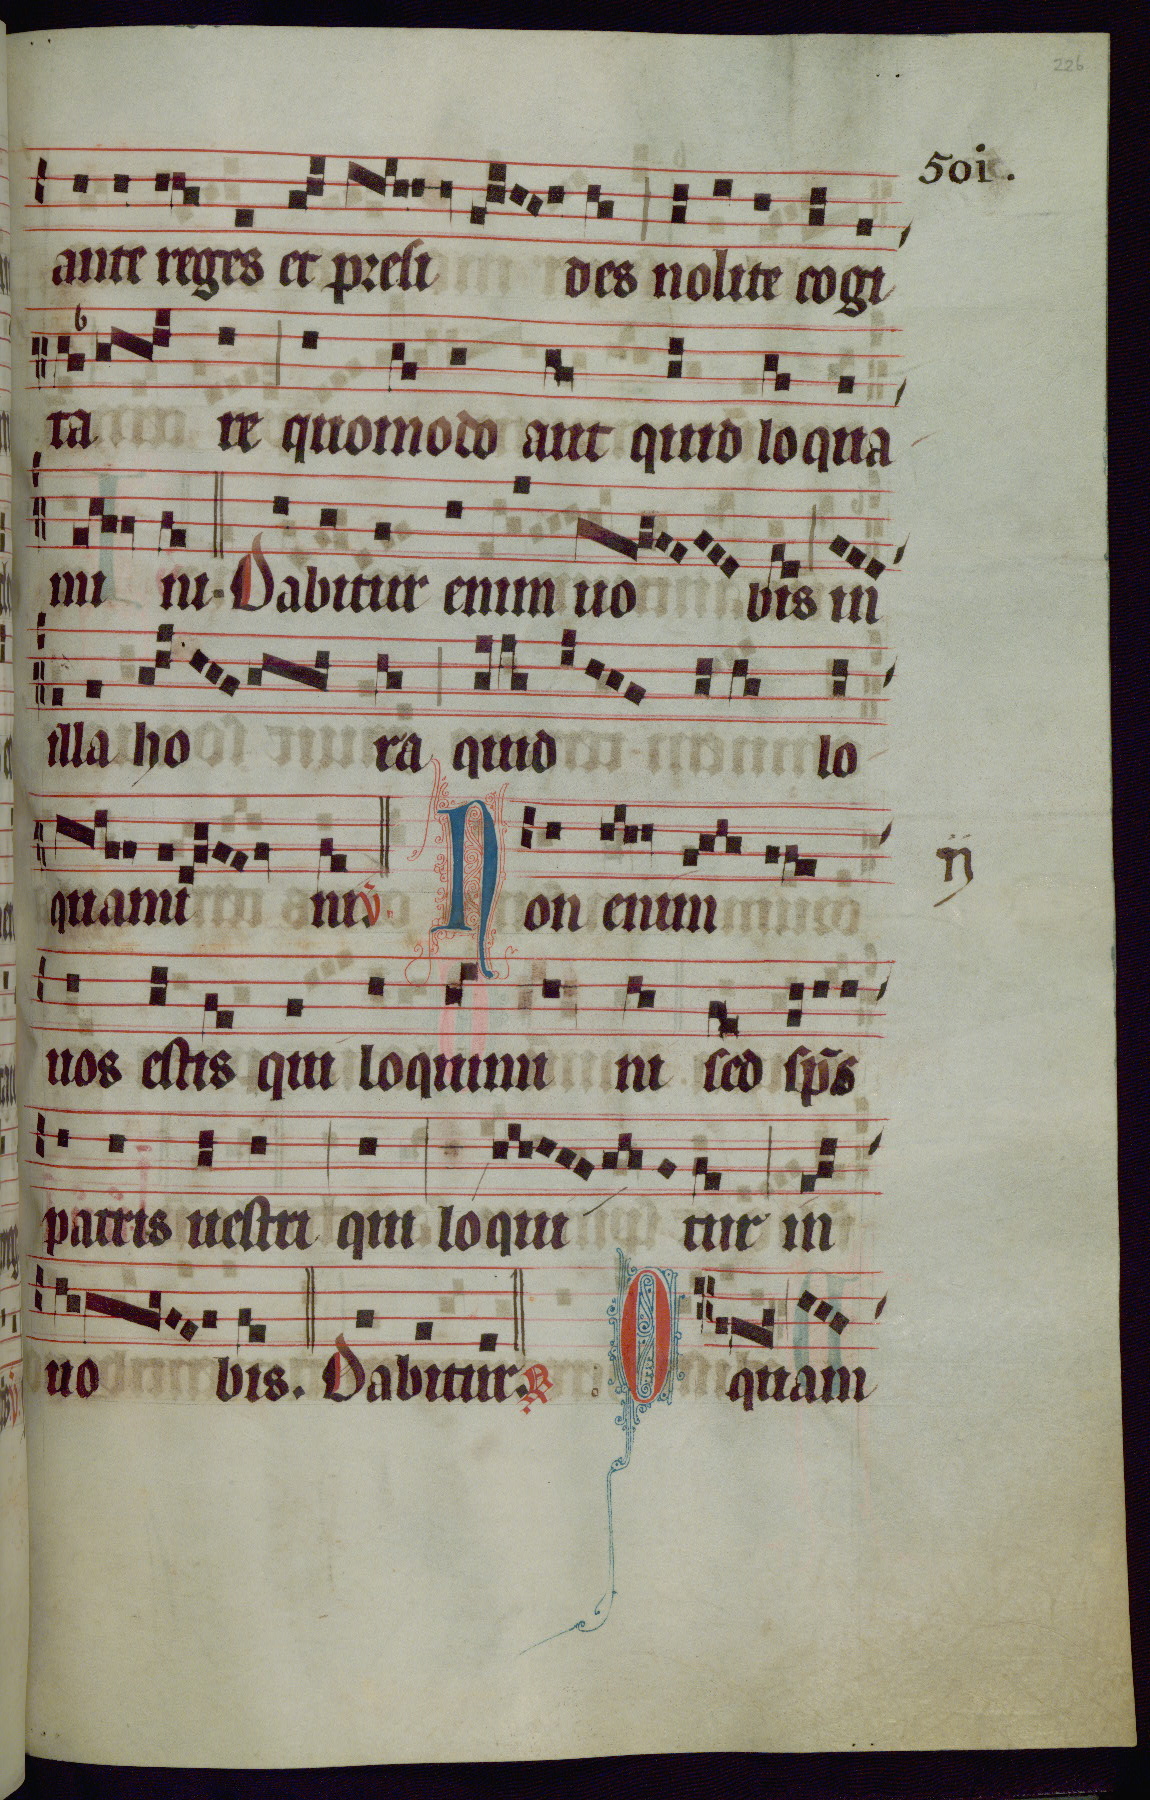 226
501.
ante reges et presi des nolite cogi
ta re quomodo aut quid loqua
mi ni. Dabitur enim uo bis in
illa ho ra quid lo
quami ni ℣. Non enim
ij
uos estis qui loquimi ni sed sp̄s
patris uestri qui loqui tur in
uo bis. Dabitur. ℟ O quam